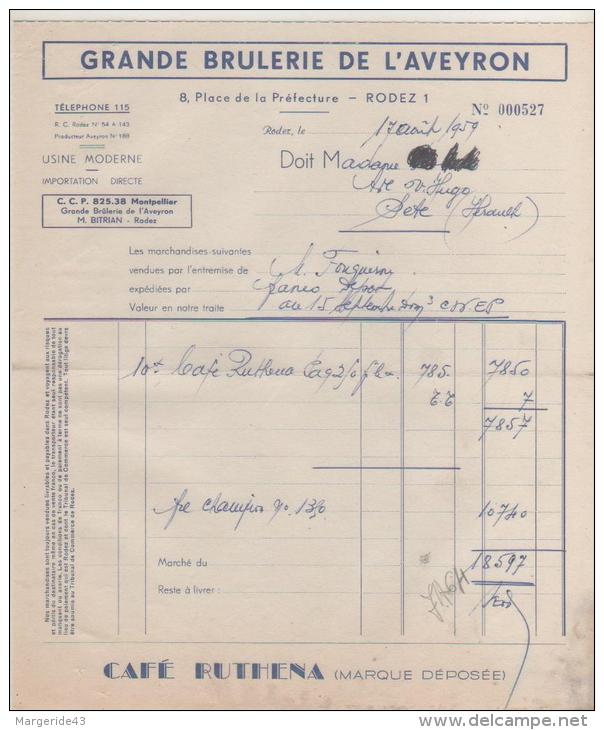 GRANDE BRULERIE DE L'AVEYRON
8, Place de la Préfecture – RODEZ 1
TÉLÉPHONE 115
Nº 000527
R. C. Rodez Nº 54 A 143
Producteur Aveyron Nº 188
Rodez, le 17 août 1959
USINE MODERNE
IMPORTATION DIRECTE
Doit Madame
Ave V. Hugo
Sète (Hérault)
C. C. P. 825.38 Montpellier
Grande Brûlerie de l'Aveyron
M. BITRIAN - Rodez
Les marchandises suivantes
vendues par l'entremise de M.
expédiées par franco
Valeur en notre traite au 15 Septembre CNEP
10 Café Ruthena 785. 7850
T.T 7
7857
champion 10740
Marché du 18597
Reste à livrer :
Nos marchandises sont toujours vendues livrables et payables dans Rodez et voyagent aux risques
et périls du destinataire même en cas de vente franco, le transporteur étant seul responsable de tout
manquant ou avarie. Les conditions de franco ou de paiement à terme ne sont pas une dérogation au
lieu de paiement qui est Rodez et dont le Tribunal de Commerce est seul compétent. Tout litige devra
être soumis au Tribunal de Commerce de Rodez.
CAFÉ RUTHENA (MARQUE DÉPOSÉE)
Margeride43
delcampe.net